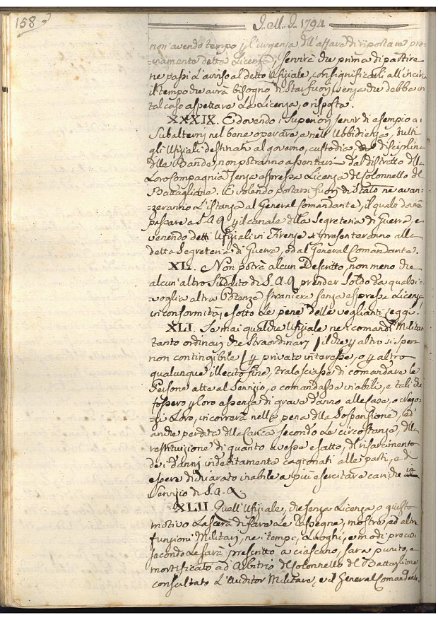 158
I. M. I. 1794.
non avendo tempo p l'urgenza dell'affare di riportare pre
ventivamente detta Licenza, servirà che prima di partire
ne passi l'avviso al detto Ufiziale, con significarli all'incirca
il tempo che avrà bisogno di star fuori, senza che debba in
tal caso aspettare la Licenza, o risposta.
XXXIX. E dovendo i Superiori servir di esempio ai
Subalterni nel bene operare, e nell'Ubbidienza, tutti
gli Ufiziali destinati al governo, custodia, e disciplina
delle Bande, non potranno assentarsi dal Distretto della
Loro Compagnia senza espressa Licenza del Colonnello del
Battaglione. E volendo portarsi fuori di Stato ne avan
zeranno l'Istanza al General Comandante, il quale dovrà
passare a S. A. R. p il canale della Segreteria di Guerra, e
venendo detti Ufiziali in Firenze si presenteranno alla
detta Segreteria di Guerra, ed al General Comandante.
XL. Non potrà alcun Descritto, non meno che
alcun altro Suddito di S. A. R. prender Soldo da qualsi
voglia altra Potenza straniera senza espressa Licenza
in conformità, e sotto le pene delle veglianti Leggi.
XLI. Se mai qualche Ufiziale ne i comandi Militari
tanto ordinari che straordinari, il che p altro si sper
non contingibile p privato interesse, o p altro
qualunque illecito fine, tralasciasse di comandare le
Persone atte al Servizio, o comandasse inabili, e tali che
fossero p loro assenza di grave danno alle case, o negozi
di Loro, incorrerà nella pena della Sospensione, ed
anche perdita della Carica secondo le circostanze, della
restituzione di quanto avesse esatto, del risarcimento
de i danni indebitamente cagionati alle parti, e d'
essere dichiarato inabile a più esercitare cariche in
Servizio di S. A. R.
XLII. Quell'Ufiziale, che senza Licenza o giusto
motivo Lascerà di fare le Rassegne, mostre, ed altre
funzioni Militari, ne i tempi, Luoghi, e modi precisi
secondo le sarà prescritto a ciascheduno, sarà punito, e
mortificato ad Arbitrio del Colonnello del Battaglione
consultato l'Auditor Militare, e il General Comandante,